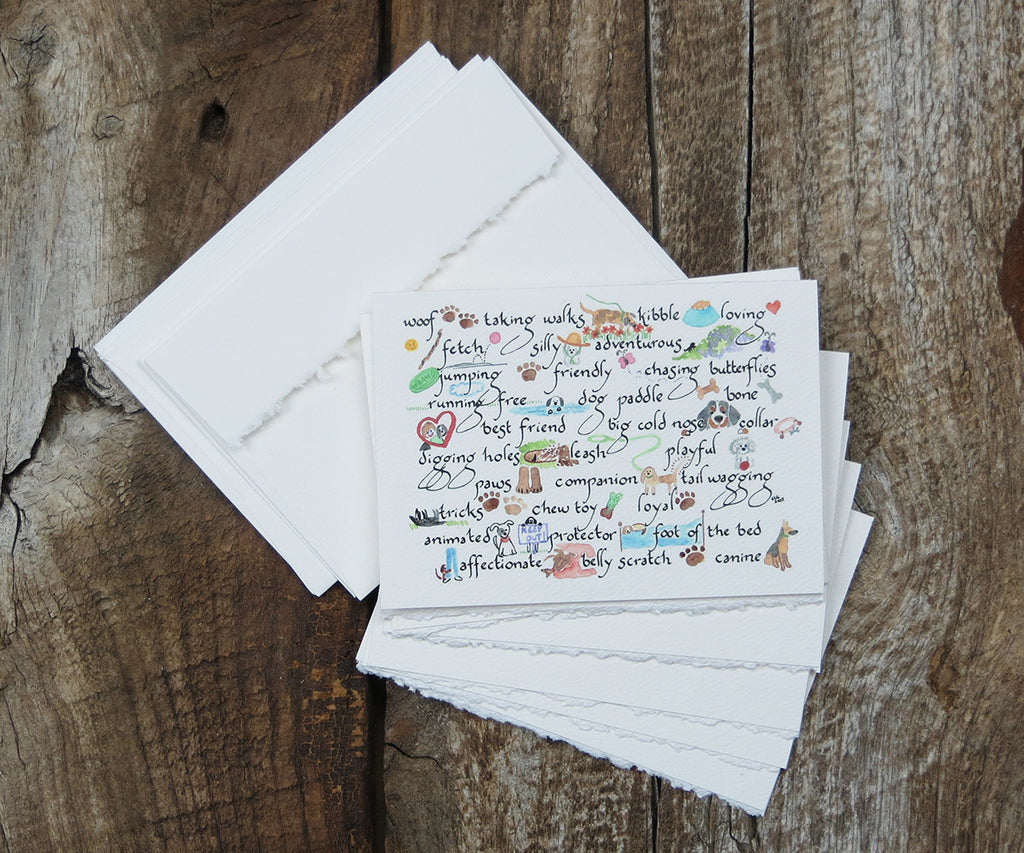 woof taking walks kibble loving
fetch silly adventurous
jumping friendly chasing butterflies
running free dog paddle bone
best friend big cold nose collar
digging holes leash playful
paws companion tail wagging
tricks chew toy loyal
animated KEEP OUT! protector foot of the bed
affectionate belly scratch canine